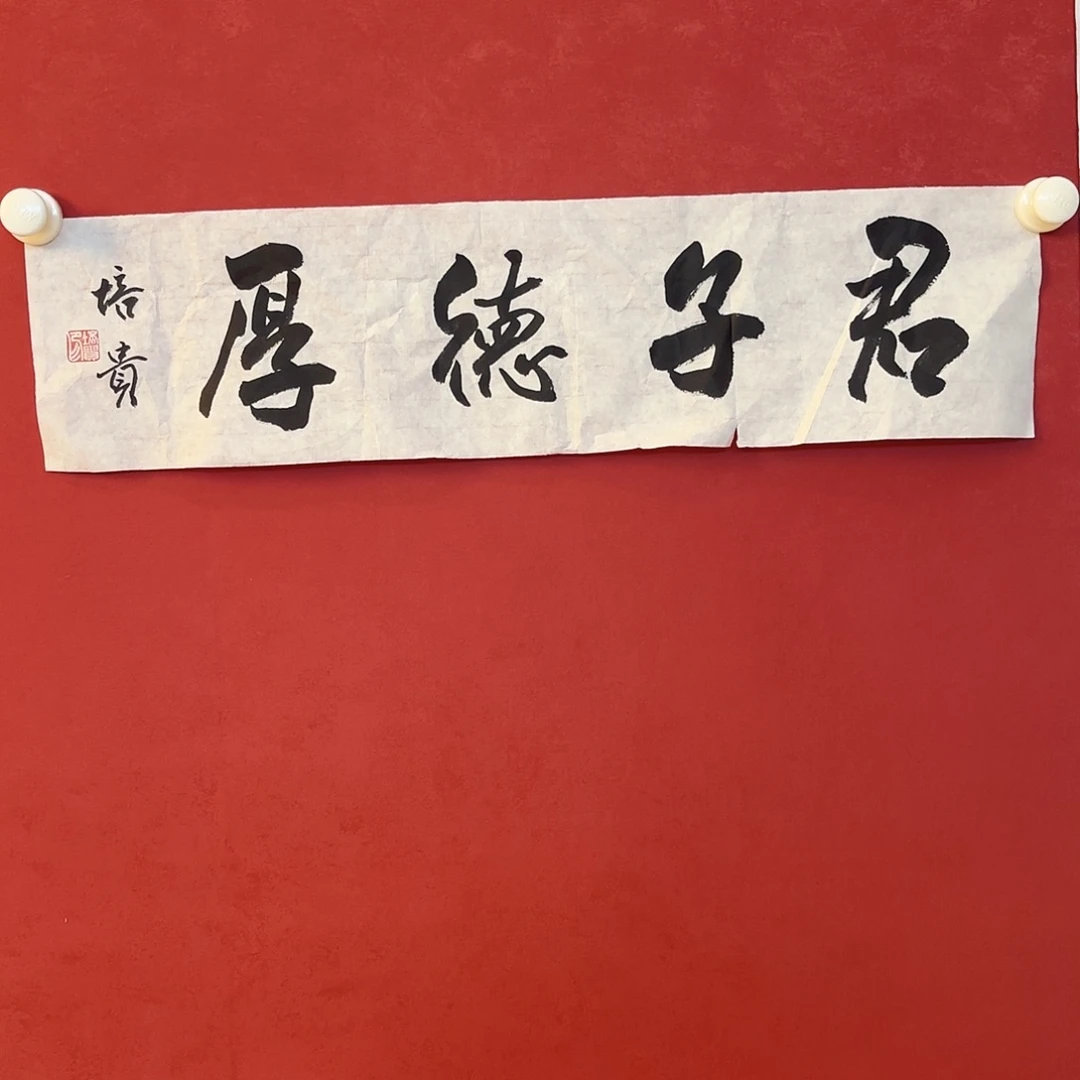 君子德厚
培貴